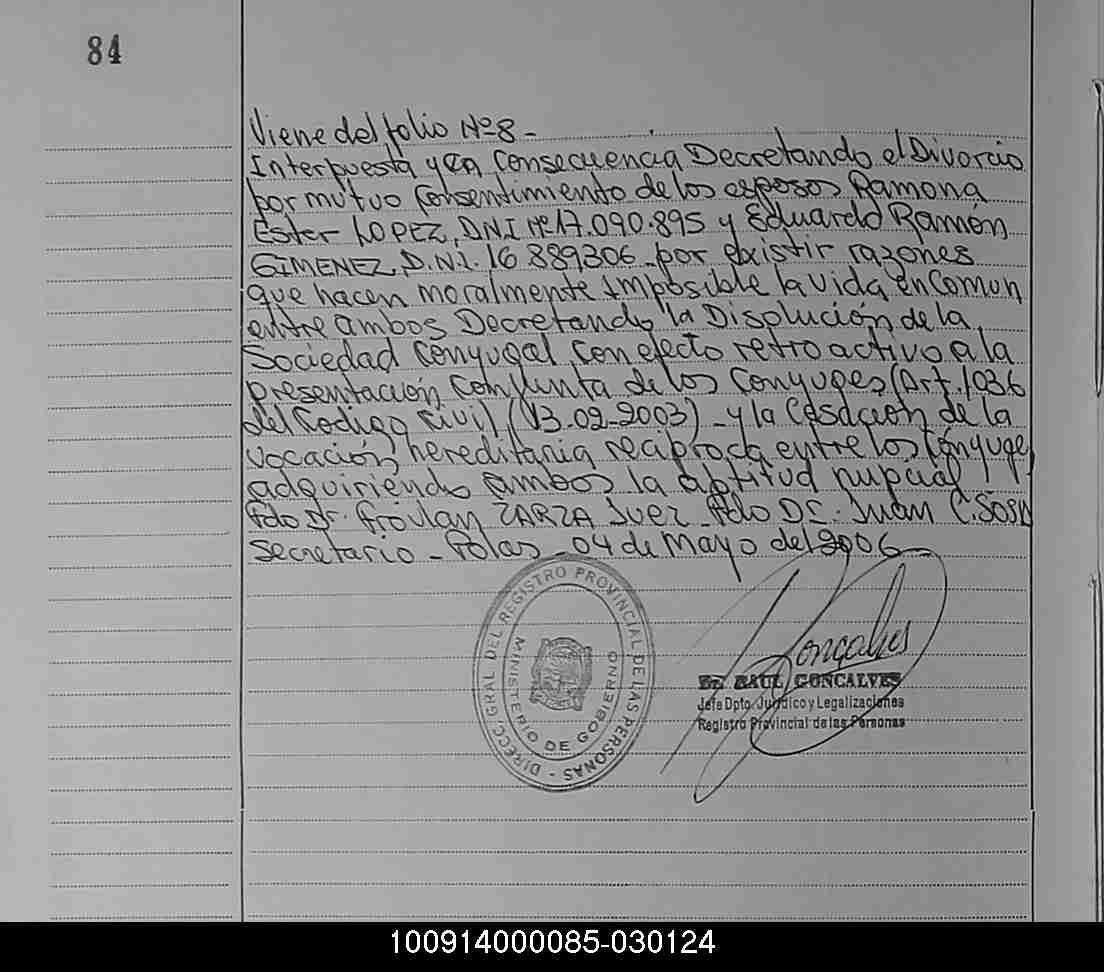 84
Viene del folio Nº 8-
Interpuesta y en Consecuencia Decretando el Divorcio
por mutuo Consentimiento de los esposos Ramona
Ester LOPEZ, DNI Nº 17.090.895 y Eduardo Ramón
GIMENEZ, D.N.I. 16 889306 - por existir razones
que hacen moralmente Imposible la vida en Comun
entre ambos Decretando la Disolución de la
Sociedad Conyugal Con efecto retroactivo a la
presentación Conjunta de los Conyuges (Art. 1036
del Codigo Civil) (13-02-2003) - y la Cesación de la
vocación hereditaria reciproca entre los Cónyuges
adquiriendo ambos la aptitud nupcial
Fdo Dr. Froilan ZARZA Juez - Fdo Dr. Juan C. SOSA
Secretario - Pdas - 04 de Mayo del 2006 -
DIRECC. GRAL DEL REGISTRO PROVINCIAL DE LAS PERSONAS -
MINISTERIO DE GOBIERNO
Goncalves
Dr. RAUL GONCALVES
Jefe Dpto. Jurídico y Legalizaciones
Registro Provincial de las Personas
100914000085-030124